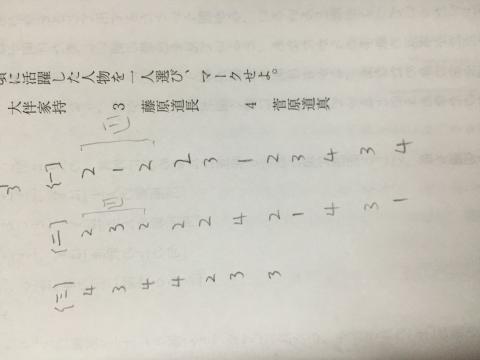 に活躍した人物を一人選び、マークせよ。
大伴家持 3 藤原道長 4 菅原道真
(四)
(一) 2 1 2 2 3 1 2 3 4 3 4
(四)
(二) 2 3 2 2 2 4 2 1 4 3 1
(三) 4 3 4 4 2 3 3